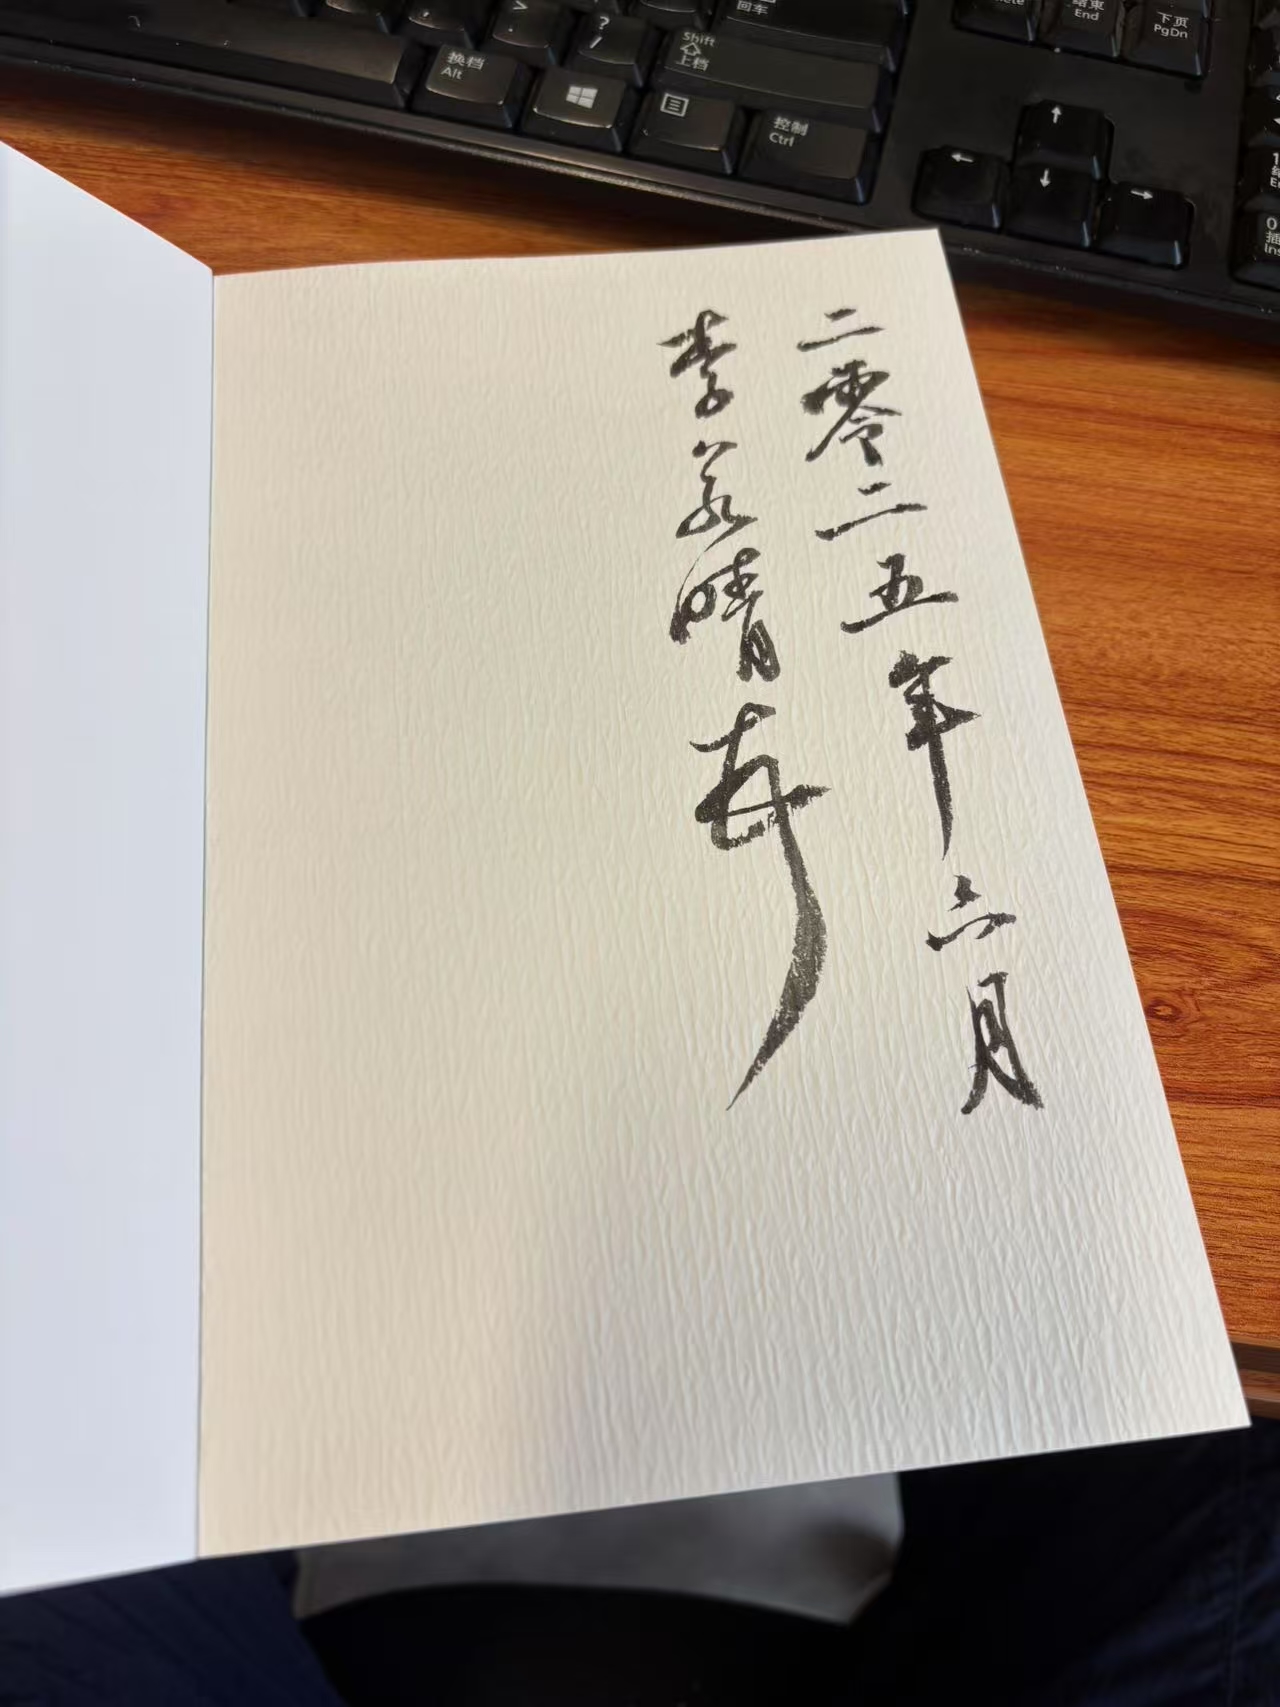 二零二五年六月
李若晴
回车
Shift
上档
换档
Alt
控制
Ctrl
结束
End
下页
PgDn